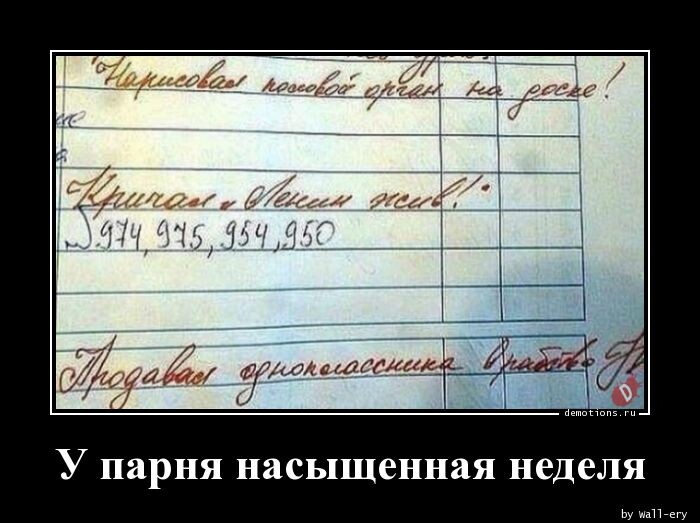 Нарисовал половой орган на доске!
Кричал „Ленин жив!"
974, 975, 954, 950
Продавал одноклассника в рабство
demotions.ru
У парня насыщенная неделя
by Wall-ery